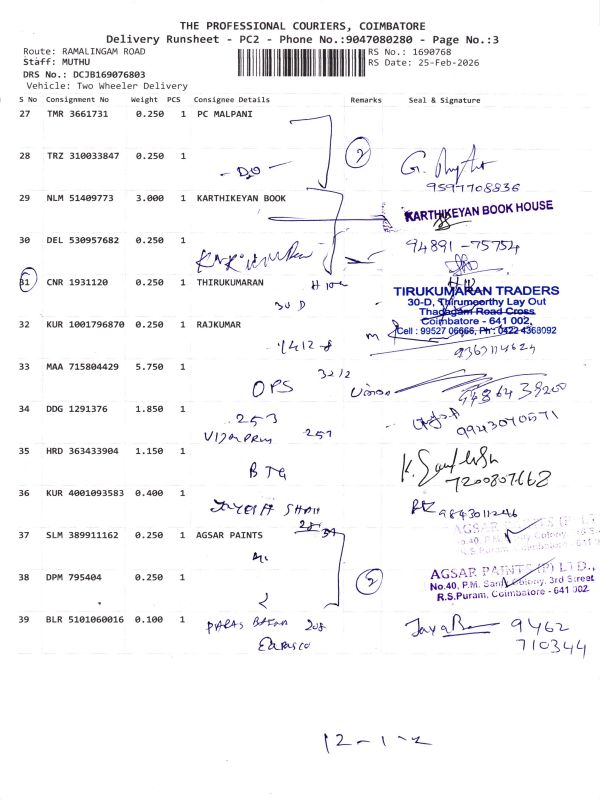 THE PROFESSIONAL COURIERS, COIMBATORE
Delivery Runsheet - PC2 - Phone No.:9047080280 - Page No.:3
Route: RAMALINGAM ROAD
Staff: MUTHU
DRS No.: DCJB169076803
Vehicle: Two Wheeler Delivery
RS No.: 1690768
RS Date: 25-Feb-2026
S No Consignment No Weight PCS Consignee Details Remarks Seal & Signature
27 TMR 3661731 0.250 1 PC MALPANI
2
28 TRZ 310033847 0.250 1
- DO -
9597708836
29 NLM 51409773 3.000 1 KARTHIKEYAN BOOK
KARTHIKEYAN BOOK HOUSE
30 DEL 530957682 0.250 1
94891-75754
31 CNR 1931120 0.250 1 THIRUKUMARAN
30 D
TIRUKUMARAN TRADERS
30-D, Thirumoorthy Lay Out
Thadagam Road Cross
Coimbatore - 641 002.
Cell : 99527 06666, Ph : 0422 4368092
32 KUR 1001796870 0.250 1 RAJKUMAR
33 MAA 715804429 5.750 1
OPS 3212
34 DDG 1291376 1.850 1
253
257
9943070571
35 HRD 363433904 1.150 1
BTG
7200807668
36 KUR 4001093583 0.400 1
9843011246
37 SLM 389911162 0.250 1 AGSAR PAINTS
38 DPM 795404 0.250 1
2
AGSAR PAINTS (P) LTD.,
No.40, P.M. Samy Colony, 3rd Street
R.S.Puram, Coimbatore - 641 002.
39 BLR 5101060016 0.100 1
208
9462
710344
12-1-2